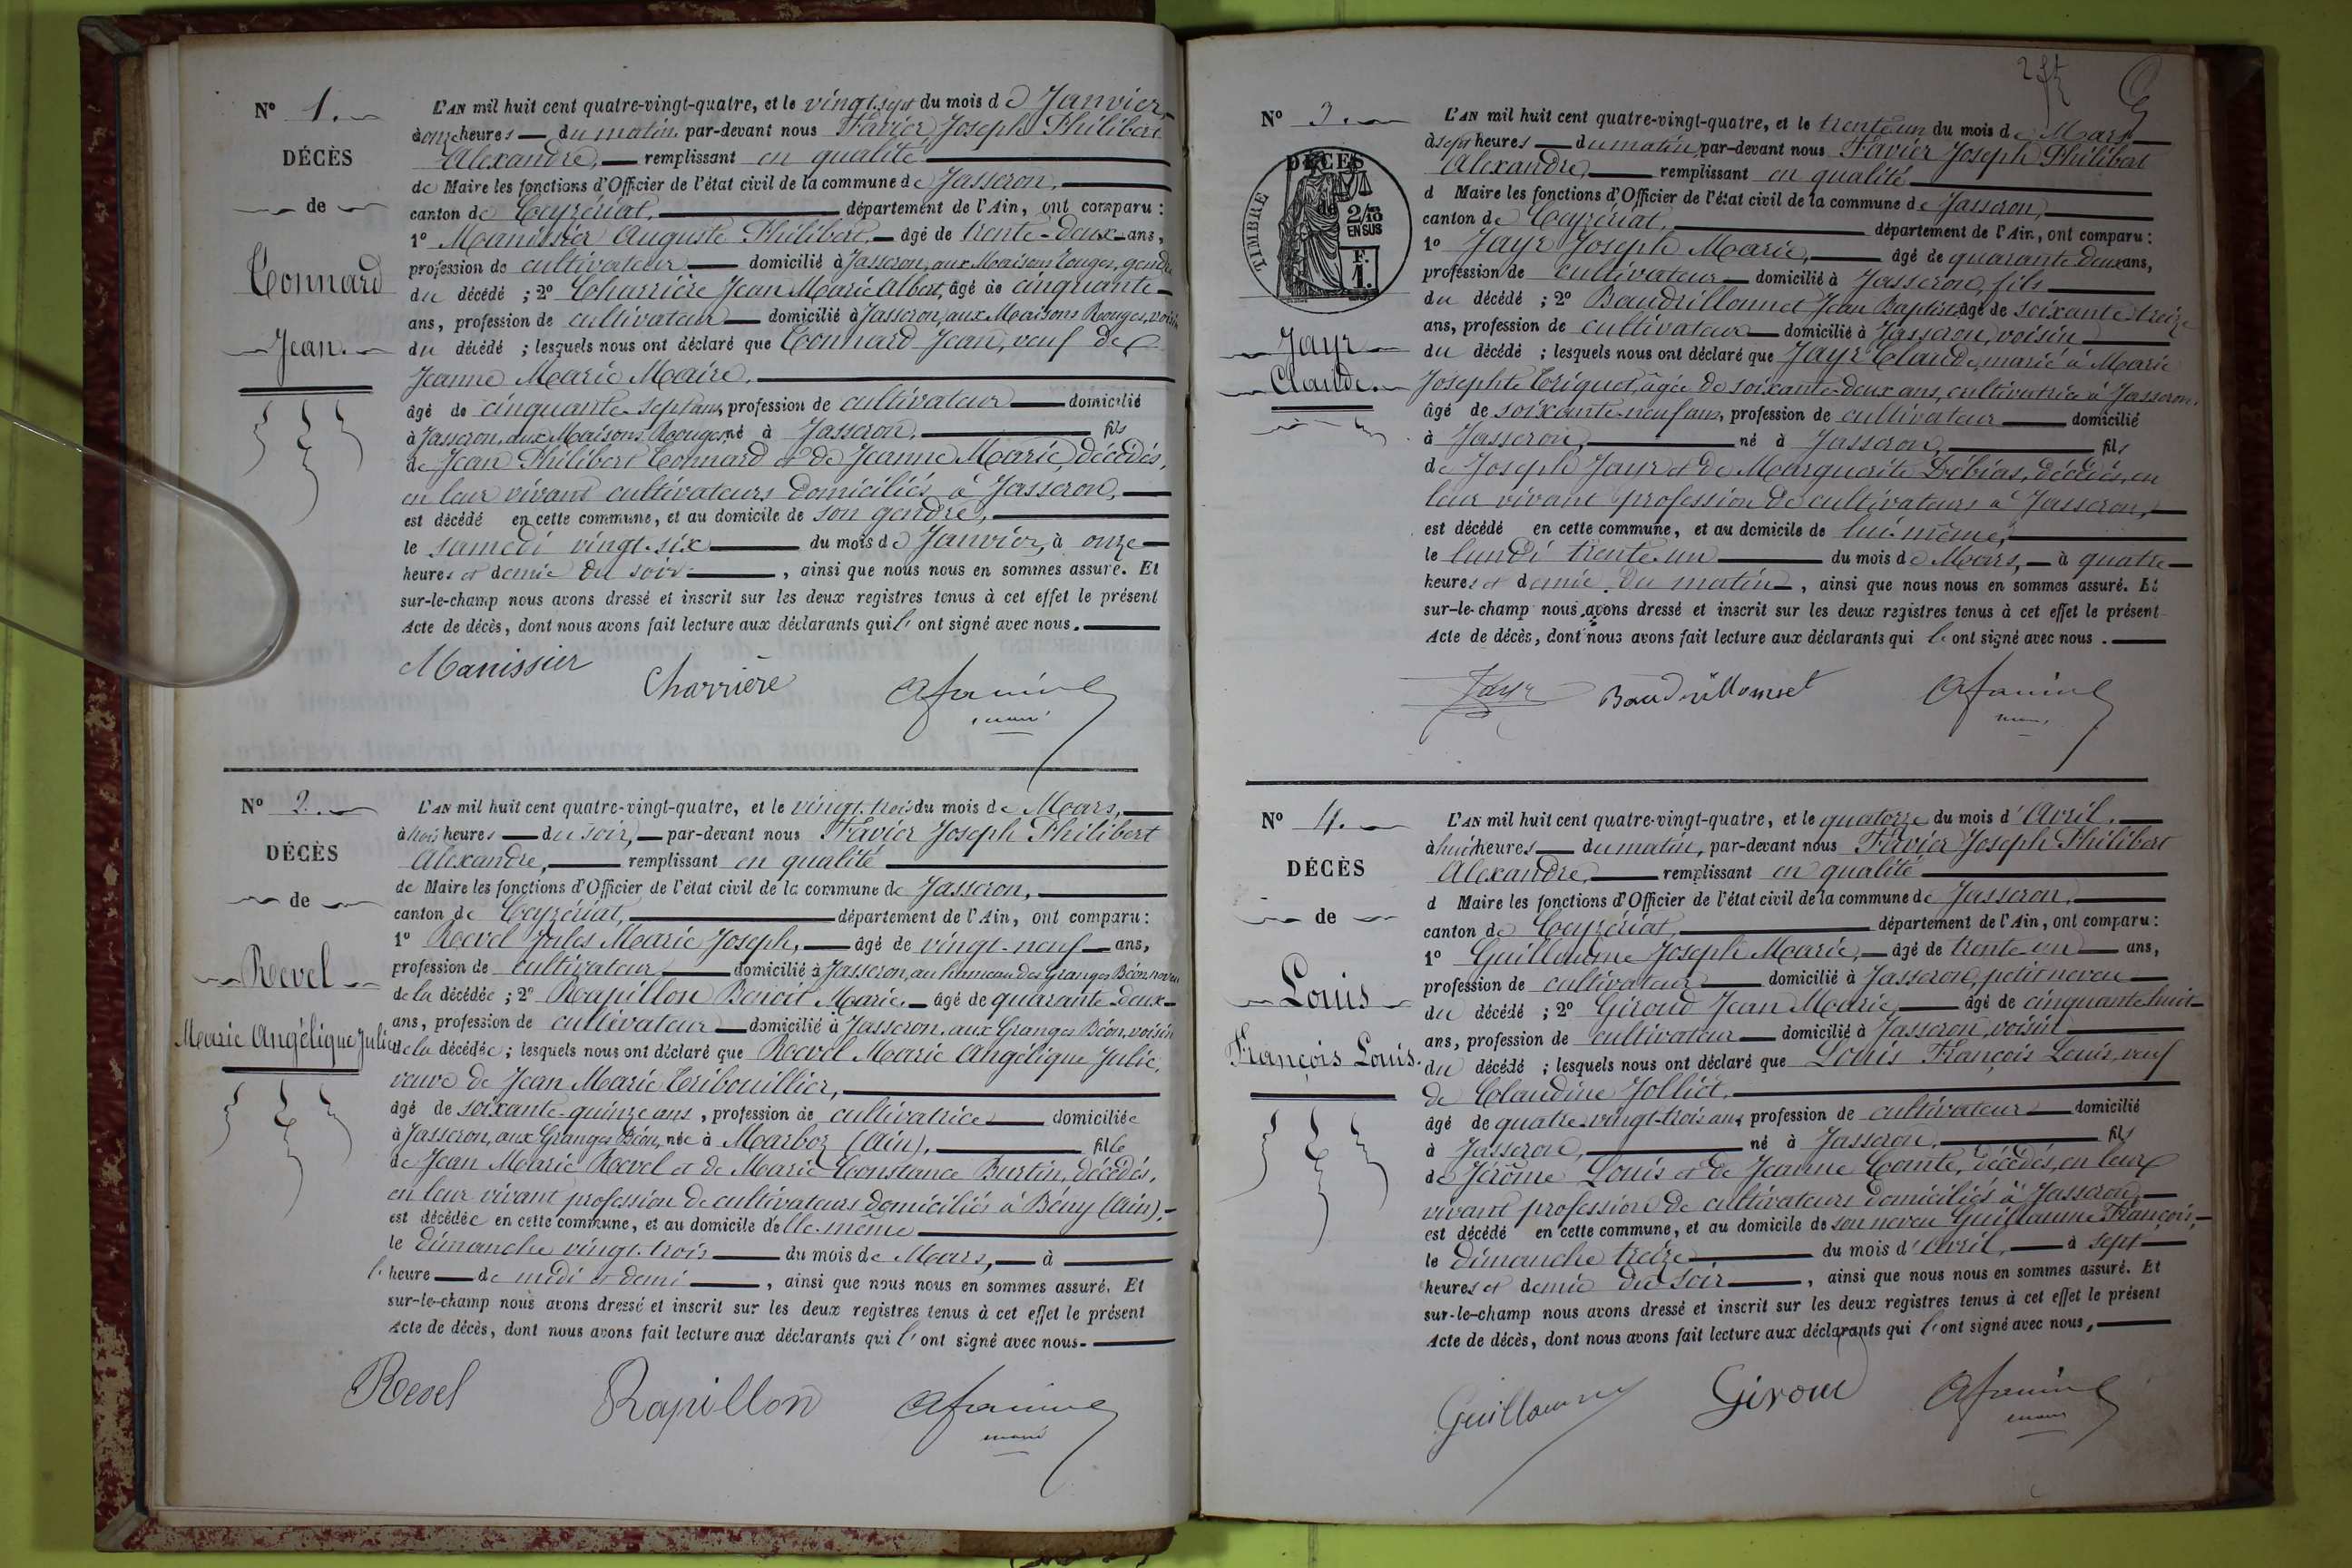 N° 1.
DÉCÈS
de
Connard
Jean.
L'AN mil huit cent quatre-vingt-quatre, et le vingt-sept du mois de Janvier,
à onze heures du matin par-devant nous Favier Joseph Philibert
Alexandre, remplissant en qualité
de Maire les fonctions d'Officier de l'état civil de la commune de Jasseron,
canton de Ceyzériat, département de l'Ain, ont comparu :
1° Manissier Auguste Philibert, âgé de trente-deux ans,
profession de cultivateur domicilié à Jasseron, aux Maisons Rouges, gendre
du décédé ; 2° Charrière Jean Marie Albert, âgé de cinquante
ans, profession de cultivateur domicilié à Jasseron, aux Maisons Rouges, voisin
du décédé ; lesquels nous ont déclaré que Connard Jean, veuf de
Jeanne Marie Maire.
âgé de cinquante-sept ans, profession de cultivateur domicilié
à Jasseron, aux Maisons Rouges, né à Jasseron, fils
de Jean Philibert Connard et de Jeanne Marie, décédés,
en leur vivant cultivateurs domiciliés à Jasseron,
est décédé en cette commune, et au domicile de son gendre,
le samedi vingt-six du mois de Janvier, à onze
heures et demie du soir, ainsi que nous nous en sommes assuré. Et
sur-le-champ nous avons dressé et inscrit sur les deux registres tenus à cet effet le présent
Acte de décès, dont nous avons fait lecture aux déclarants qui l'ont signé avec nous.
Manissier Charrière
N° 2.
DÉCÈS
de
Revel
Marie Angélique Julie
L'AN mil huit cent quatre-vingt-quatre, et le vingt-trois du mois de Mars,
à trois heures du soir, par-devant nous Favier Joseph Philibert
Alexandre, remplissant en qualité
de Maire les fonctions d'Officier de l'état civil de la commune de Jasseron,
canton de Ceyzériat, département de l'Ain, ont comparu :
1° Revel Jules Marie Joseph, âgé de vingt-neuf ans,
profession de cultivateur domicilié à Jasseron, au hameau des Granges Béon, neveu
de la décédée ; 2° Rapillon Benoit Marie, âgé de quarante-deux
ans, profession de cultivateur domicilié à Jasseron, aux Granges Béon, voisin
de la décédée ; lesquels nous ont déclaré que Revel Marie Angélique Julie,
veuve de Jean Marie Tribouillier,
âgé de soixante-quinze ans, profession de cultivatrice domiciliée
à Jasseron, aux Granges Béon, née à Marboz (Ain), fille
de Jean Marie Revel et de Marie Constance Burtin, décédés,
en leur vivant profession de cultivateurs domiciliés à Bény (Ain),
est décédée en cette commune, et au domicile d'elle-même
le dimanche vingt-trois du mois de Mars, à
l'heure de midi et demi, ainsi que nous nous en sommes assuré. Et
sur-le-champ nous avons dressé et inscrit sur les deux registres tenus à cet effet le présent
Acte de décès, dont nous avons fait lecture aux déclarants qui l'ont signé avec nous.
Revel Rapillon
N° 3.
DÉCÈS
de
TIMBRE
2/10
EN SUS
F.
1.
Jayr
Claude.
L'AN mil huit cent quatre-vingt-quatre, et le trente un du mois de Mars
à sept heures du matin, par-devant nous Favier Joseph Philibert
Alexandre, remplissant en qualité
d Maire les fonctions d'Officier de l'état civil de la commune de Jasseron,
canton de Ceyzériat, département de l'Ain, ont comparu :
1° Jayr Joseph Marie, âgé de quarante deux ans,
profession de cultivateur domicilié à Jasseron, fils
du décédé ; 2° Baudrillonnet Jean Baptiste âgé de soixante treize
ans, profession de cultivateur domicilié à Jasseron, voisin
du décédé ; lesquels nous ont déclaré que Jayr Claude, marié à Marie
Josephte Triquet, âgée de soixante-deux ans, cultivatrice à Jasseron,
âgé de soixante-neuf ans, profession de cultivateur domicilié
à Jasseron, né à Jasseron, fils
de Joseph Jayr et de Marguerite Débias, décédés, en
leur vivant profession de cultivateurs à Jasseron,
est décédé en cette commune, et au domicile de lui-même,
le lundi trente-un du mois de Mars, à quatre
heures et demie du matin, ainsi que nous nous en sommes assuré. Et
sur-le-champ nous avons dressé et inscrit sur les deux registres tenus à cet effet le présent
Acte de décès, dont nous avons fait lecture aux déclarants qui l'ont signé avec nous.
Jayr Baudrillonnet
N° 4.
DÉCÈS
de
Louis
François Louis.
L'AN mil huit cent quatre-vingt-quatre, et le quatorze du mois d'Avril,
à huit heures du matin, par-devant nous Favier Joseph Philibert
Alexandre, remplissant en qualité
d Maire les fonctions d'Officier de l'état civil de la commune de Jasseron,
canton de Ceyzériat, département de l'Ain, ont comparu :
1° Guillaume Joseph Marie, âgé de trente-un ans,
profession de cultivateur domicilié à Jasseron, petit neveu
du décédé ; 2° Giroud Jean Marie, âgé de cinquante huit
ans, profession de cultivateur domicilié à Jasseron, voisin
du décédé ; lesquels nous ont déclaré que Louis François Louis, veuf
de Claudine Jolliet,
âgé de quatre-vingt-trois ans, profession de cultivateur domicilié
à Jasseron, né à Jasseron, fils
de Jérôme Louis et de Jeanne Comte, décédés, en leur
vivant profession de cultivateurs domiciliés à Jasseron,
est décédé en cette commune, et au domicile de son neveu Guillaume François,
le dimanche treize du mois d'Avril, à sept
heures et demie du soir, ainsi que nous nous en sommes assuré. Et
sur-le-champ nous avons dressé et inscrit sur les deux registres tenus à cet effet le présent
Acte de décès, dont nous avons fait lecture aux déclarants qui l'ont signé avec nous,
Guillaume Giroud